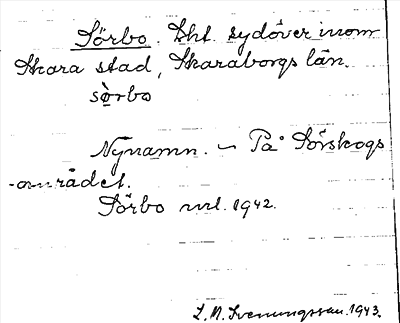 Sörbo. Lht. sydöver inom
Skara stad, Skaraborgs län.
sö̀rbo
Nynamn. – På Sörskogs
-området.
Sörbo 1942.
Svenungsson. 1943.